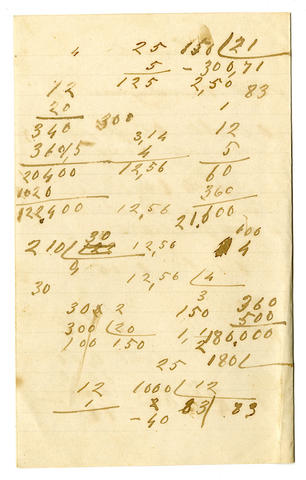 4 25 150 21
5 - 300,71
12 125 2,50 83
20 1
340 300 12
3,14
3605 4 5
20400 12,56 60
1020 360
122400 12,56 21,000
30 100
210 12,56 4
9 12,56 4
30 3
30 x 2 150 360
300 20 500
100 150 180,000
25 180
12 1000 12
1 2 83 83
- 40